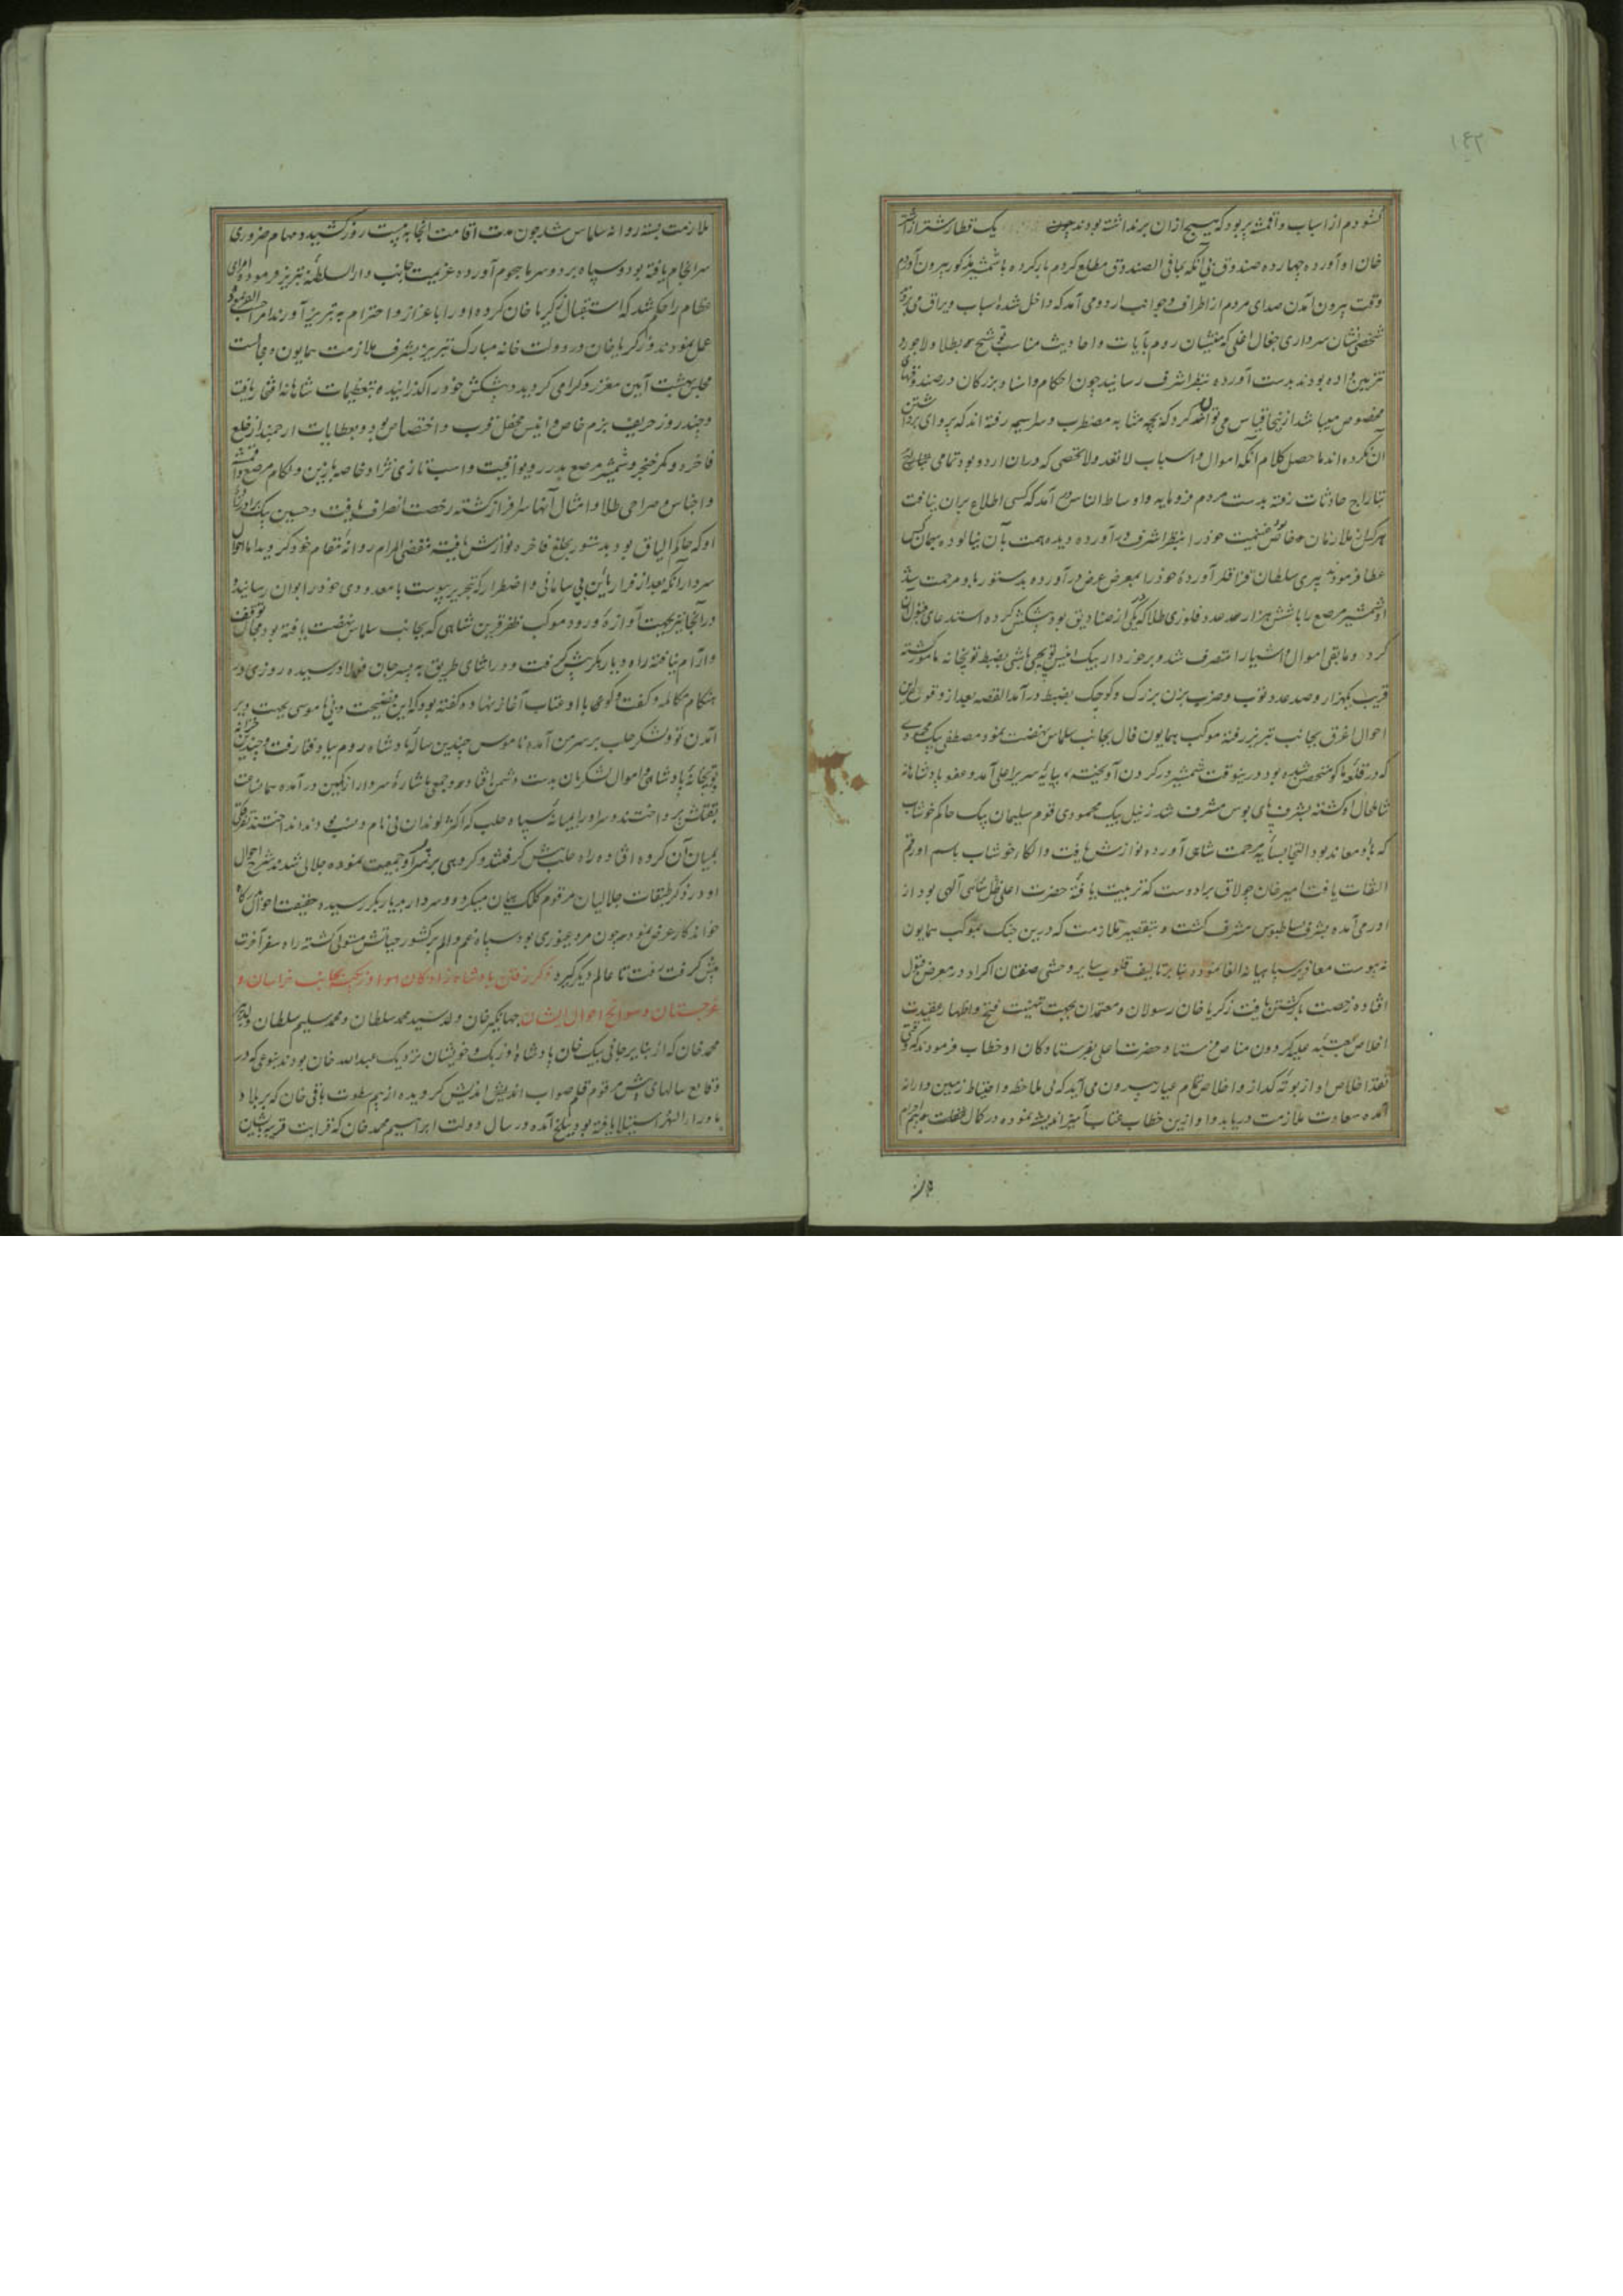 ۱۴۳
کشودم از اسباب و اقمشه پر بود که هیچ از ان برنداشته بودند چون یک قطار شتر از شتر
خان او آورده چهارده صندوق بی آنکه بمافی الصندوق مطلع کردم بار کرده با شمشیر مذکور بیرون آوردم
وقت بیرون آمدن صدای مردم از اطراف و جوانب اردو می آمد که داخل شده اسباب و یراق می
شخصی نشان سرداری جغال اغلی که منشیان روم بآیات و احادیث مناسب فتح بطلا و لاجورد
تزیین داده بودند بدست آورده بنظر اشرف رسانید چون احکام و بزرگان در صندوقهای
مخصوص میباشد از اینجا قیاس می توان کرد که بچه مثابه مضطرب و سراسیمه رفته اند که پروای برداشتن
آن نکرده اند ما حصل کلام آنکه اموال و اسباب لا تعد ولا تحصی که در ان اردو بود تمامی
بتاراج حادثات رفته بدست مردم فرومایه و اوساط الناس آمد که کسی اطلاع بران نیافت
هر کس از ملازمان خاص غنیمت خود را بنظر اشرف در آورده دیده همت بآن نیالوده بهمان کس
عطا فرمودند پیری سلطان قناقلر آورده خود را بمعرض عرض در آورده بدستور باو مرحمت شد
او شمشیر مرصع را با شش هزار عدد فلوری طلا که در یکی از صنادیق بود پیشکش کرده استدعای قبول ان
کرد و مابقی اموال و اشیا را متصرف شد و برخوردار بیک انیس توپچی باشی بضبط توپخانه مامور کشته
قریب یکهزار و صد عدد توپ و ضرب زن بزرک و کوچک بضبط در آمد القصه بعد از وقوع این
احوال اغرق بجانب تبریز رفته موکب همایون فال بجانب سلماس نهضت نمود مصطفی بیک محمودی
که در قلعه ماکو متحصن شده بود درینوقت شمشیر در کردن آویخته بپایه سریر اعلی آمد و عفو پادشاهانه
شامل حال او کشته بشرف پای بوس مشرف شد زینل بیک محمودی قوم سلیمان بیک حاکم خوشاب
که باو معاند بود التجا بسایه مرحمت شاهی آورده نوازش یافت و الکاء خوشاب باسم او رقم
التفات یافت امیر خان چولاق برادوست که تربیت یافته حضرت اعلی ظل اللهی بود از
اورمی آمده بشرف بساط بوس مشرف کشت و بتقصیر ملازمت که درین جنک بموکب همایون
نه پیوست معاذیر سپاهیانه القا نموده بنا بر تالیف قلوب سایر وحشی صفتان اکراد در معرض قبول
افتاده رخصت بازکشتن یافت زکریا خان رسولان و معتمدان بجهت تهنیت فتح و اظهار عقیدت
اخلاص بعتبه علیه کردون مناص فرستاد حضرت اعلی بفرستادکان او خطاب فرمودند که وقتی
نقد اخلاص او از بوته کداز و اخلاص تمام عیار بیرون می آید که بی ملاحظه و احتیاط زمین دارانه
آمده سعادت ملازمت دریابد و او ازین خطاب عتاب آمیز اندیشه نموده در کمال خفت
ملازمت بسته روانه سلماس شد چون مدت اقامت انجا به بیست روز کشید و مهام ضروری
سرانجام یافته بود و سپاه برد و سرما هجوم آورده عزیمت جانب دار السلطنه تبریز فرموده امرای
عظام را حکم شد که استقبال زکریا خان کرده او را باعزاز و احترام به تبریز آورند
عمل نمودند و زکریا خان در دولت خانه مبارک تبریز بشرف ملازمت همایون و مجالست
مجلس بهشت آیین معزز و کرامی کردید و پیشکش خود را کذرانیده بتعظیمات شاهانه افتخار یافت
و چند روز حریف بزم خاص و انیس محفل قرب و اختصاص بود و بعطایات ارجمند از خلع
فاخره و کمر خنجر و شمشیر مرصع بدرر و یواقیت و اسب تازی نژاد خاصه بازین و لکام مرصع و اقمشه
و اجناس و صراحی طلا و امثال آنها سرافراز کشته رخصت انصراف یافت و حسین بیک برادرزاده
او که حاکم الباق بود بدستور بخلع فاخره نوازش یافته مقضی المرام روانه مقام خود کردید اما احوال
سردار آنکه بعد از فرار باین بی سامانی و اضطرار که بتحریر پیوست با معدودی خود را بوان رسانید و
در آنجا نیز بجهت آوازه ورود موکب ظفر قرین شاهی که بجانب سلماس نهضت یافته بود مجال توقف
و آرام نیافته راه دیار بکر پیش کرفت و در اثنای طریق به پسر جان فولاد رسیده روزی در
هنکام مکالمه و کفت و کو بمحابا او عتاب آغاز نهاده کفته بود که این فضیحت و بی ناموسی بجهت دیر
آمدن تو و لشکر حلب بر سر من آمده ناموس چندین ساله پادشاه روم بباد فنا رفت و چندین خزانه
توپخانه پادشاهی و اموال لشکریان بدست دشمن افتاد و جمعی باشاره سردار از کمین در آمده همان ساعت
بقتلش پرداختند و سر او را بمیانه سپاه حلب که اکثر لوندان بی نام و نسب بودند انداختند تفرقه
بمیان آن کروه افتاده راه حلب پیش کرفتند و کروهی بر سر او جمعیت نموده جلالی شدند شرح احوال
او در ذکر طبقات جلالیان مرقوم کلک بیان میکردد و سردار بدیار بکر رسیده حقیقت احوال
خواندکار عرض نمود چون مرد غیوری بود سپاه غم و الم بر کشور حیاتش مستولی کشته راه سفر آخرت
پیش کرفت رفت تا عالم دیکر کیرد ذکر رفتن پادشاه زاده کان اوزبک بجانب خراسان و
غرجستان و سوانح احوال ایشان جهانکیر خان ولد سید محمد سلطان و محمد سلیم سلطان ولد پیر
محمد خان که از بنایر جانی بیک خان پادشاه اوزبک و خویشان نزدیک عبدالله خان بودند بنوعی که در
وقایع سالهای پیش مرقوم قلم صواب اندیش کردیده از بیم سطوت باقی خان که بر بلاد
ماوراء النهر استیلا یافته بود ببلخ آمده در سال دولت ابراهیم محمد خان که قرابت قریبه